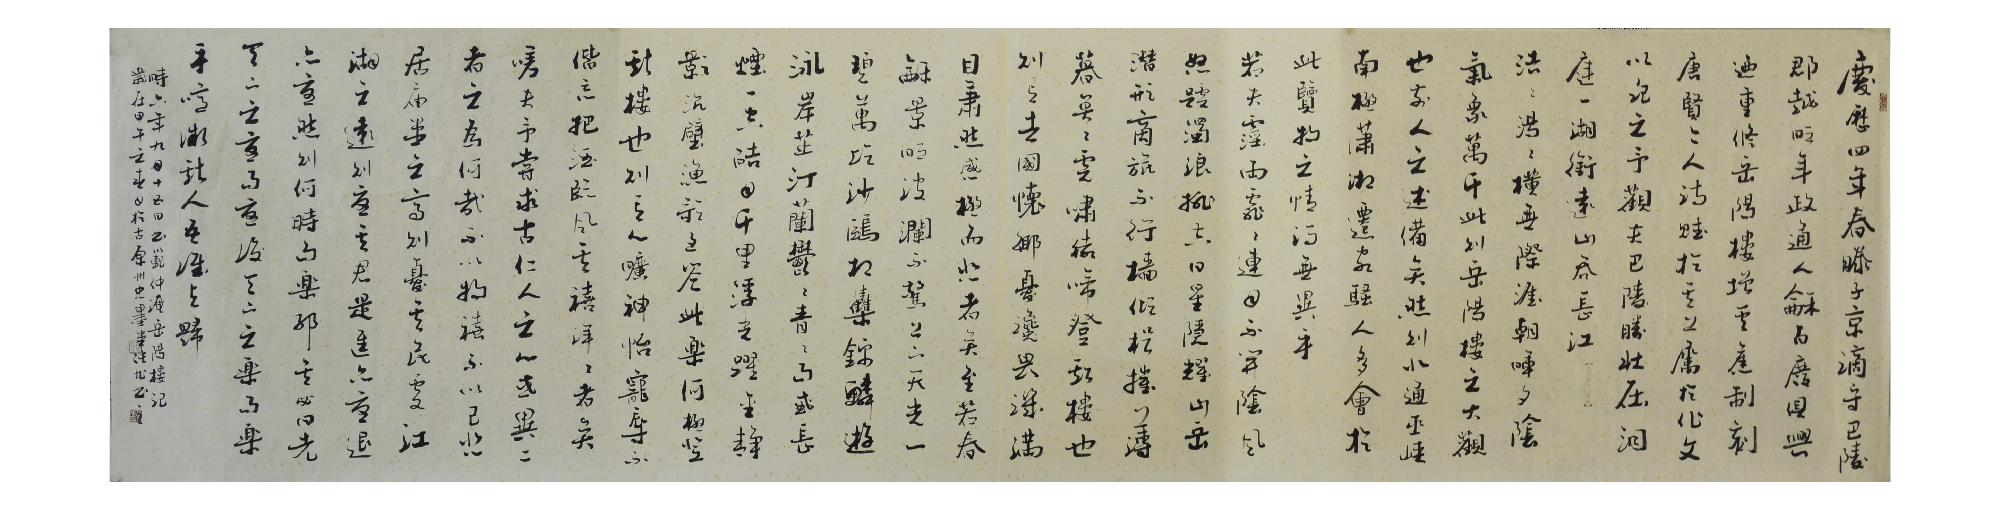 慶歷四年春滕子京謫守巴陵
郡越明年政通人龢百廢俱興
迺重修岳陽樓增其舊制刻
唐賢今人詩賦於其上屬於作文
以記之予觀夫巴陵勝狀在洞
庭一湖銜遠山吞長江
浩浩湯湯橫無際涯朝暉夕陰
氣象萬千此則岳陽樓之大觀
也前人之述備矣然則北通巫峽
南極瀟湘遷客騷人多會於
此覽物之情得無異乎
若夫霪雨霏霏連月不開陰風
怒號濁浪排空日星隱耀山岳
潛形商旅不行檣傾楫摧薄
暮冥冥虎嘯猿啼登斯樓也
則有去國懷鄉憂讒畏譏滿
目蕭然感極而悲者矣至若春
龢景明波瀾不驚上下天光一
碧萬頃沙鷗翔集錦鱗游
泳岸芷汀蘭鬱鬱青青而或長
煙一空皓月千里浮光躍金靜
影沉璧漁歌互答此樂何極登
斯樓也則有心曠神怡寵辱不
偕忘把酒臨風其喜洋洋者矣
嗟夫予嘗求古仁人之心或異二
者之為何哉不以物喜不以己悲
居廟堂之高則憂其民處江
湖之遠則憂其君是進亦憂退
亦憂然則何時而樂耶其必曰先
天下之憂而憂後天下之樂而樂
乎噫微斯人吾誰與歸
時六年九月十五日書範仲淹岳陽樓記
歲在甲午之春月於古原州